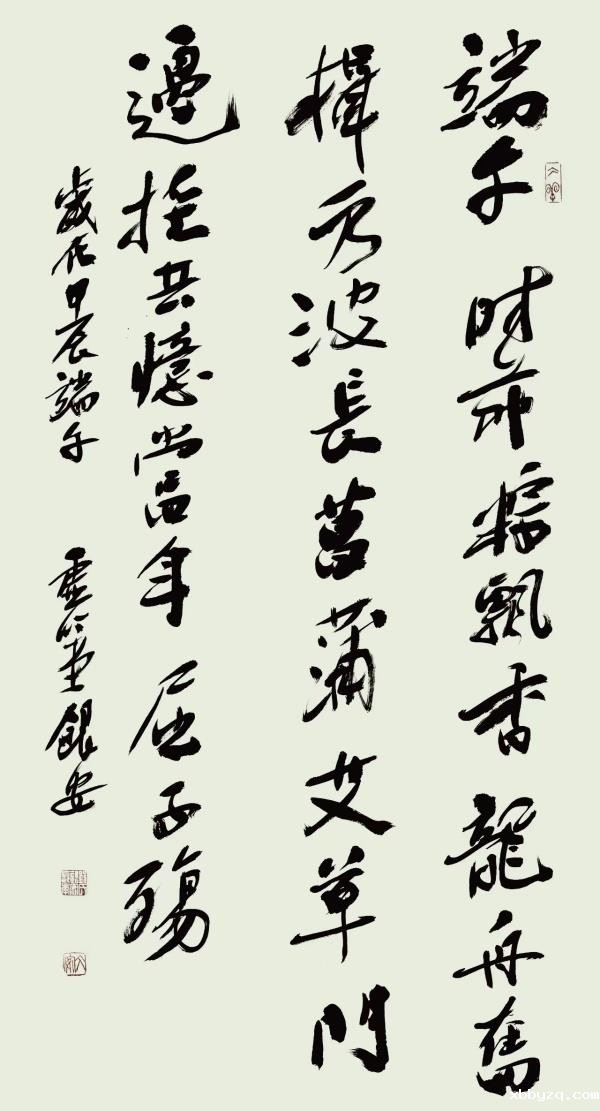 端午時節粽飄香龍舟奮
楫万波長菖蒲艾草門
邊挂共憶當年屈子殤
歲在甲辰端午 銀安
xbbyzq.com